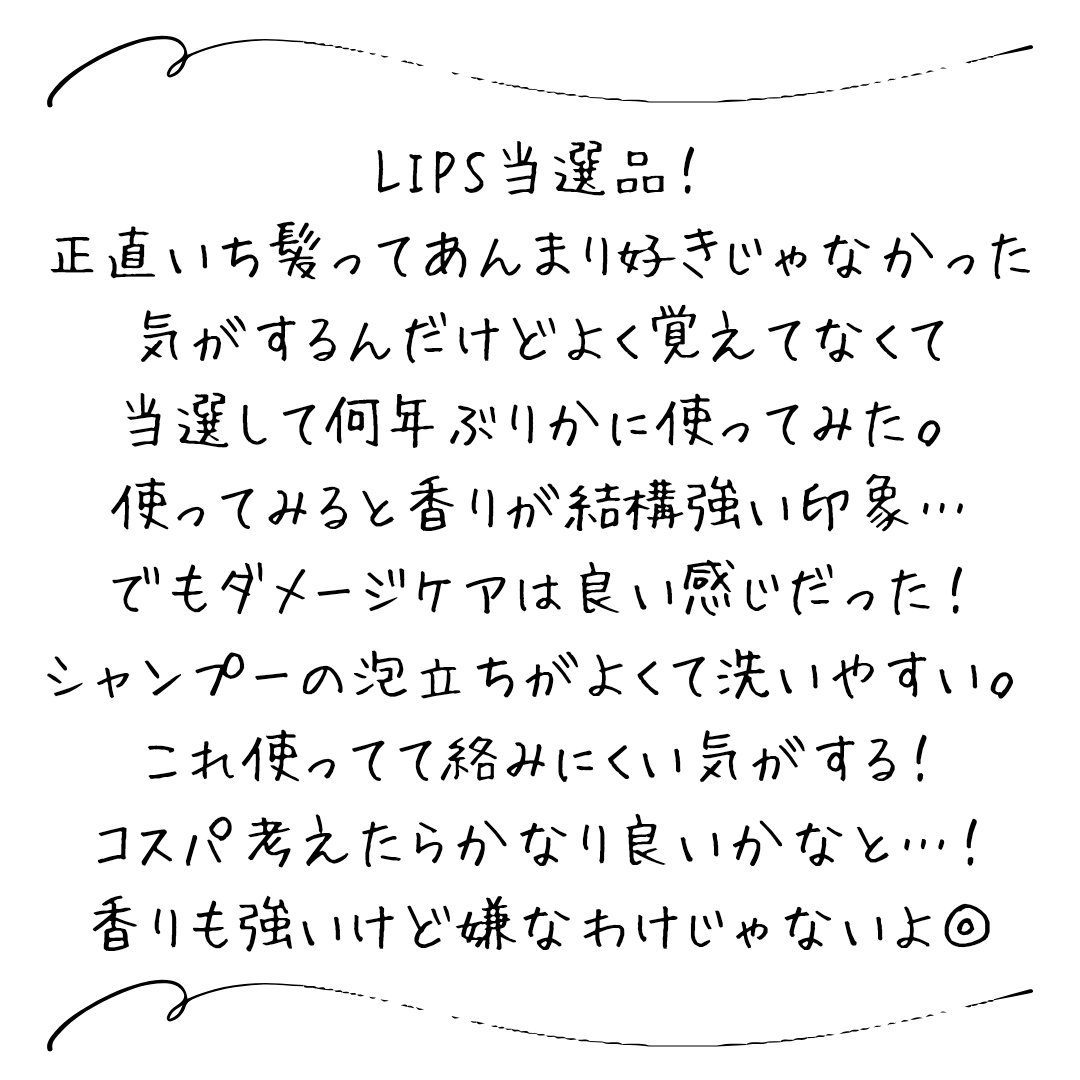 LIPS当選品!
正直いち髪ってあんまり好きじゃなかった
気がするんだけどよく覚えてなくて
当選して何年ぶりかに使ってみた。
使ってみると香りが結構強い印象…
でもダメージケアは良い感じだった!
シャンプーの泡立ちがよくて洗いやすい。
これ使ってて絡みにくい気がする!
コスパ考えたらかなり良いかなと…!
香りも強いけど嫌なわけじゃないよ◎